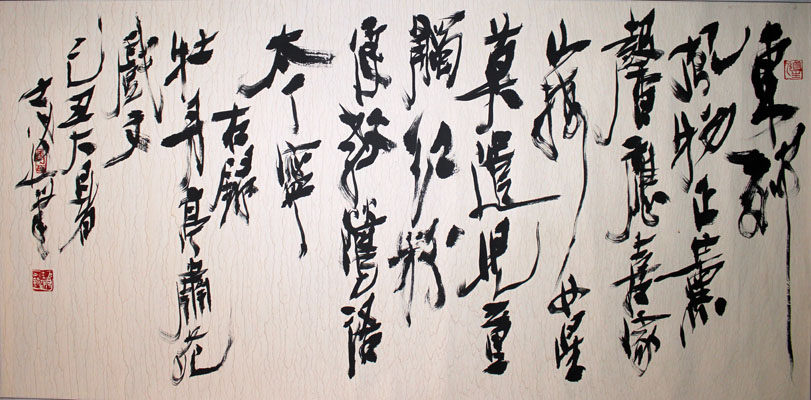 東郊
風物正薰
馨應喜家
山接女星
莫遣児童
觸紅粉
便教鶯語
太丁寧
右錄
牡丹亭肅苑
戲文
己丑大暑